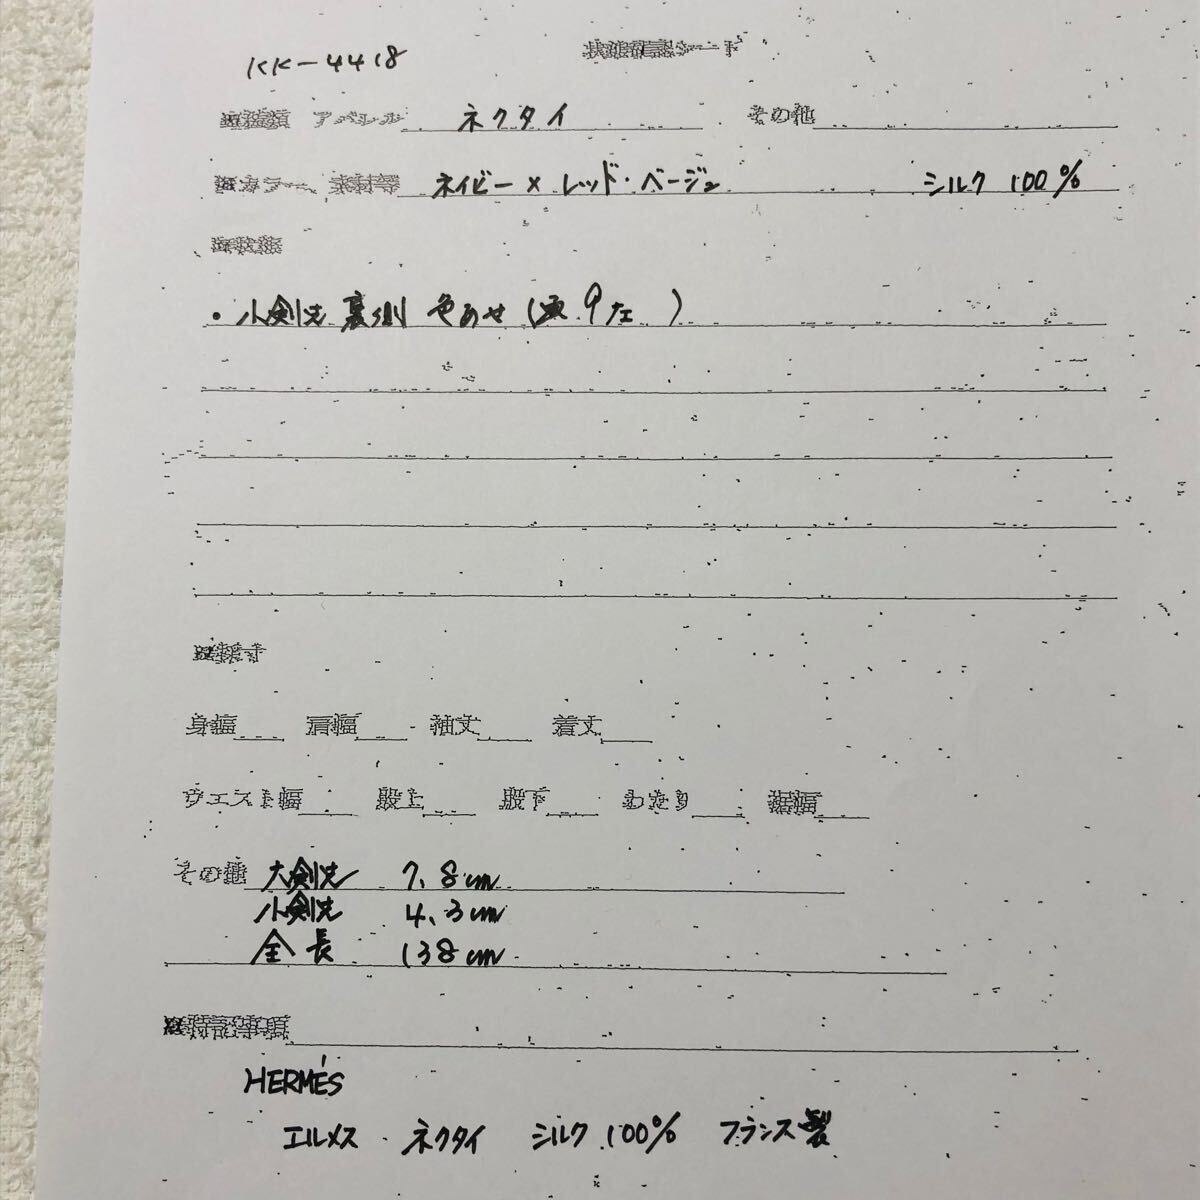 KK-4418
状態確認シート
種類 アパレル ネクタイ その他
カラー、素材等 ネイビー×レッド・ベージュ シルク 100%
状態
・小剣先 裏側 色あせ(
採寸
身幅 肩幅 袖丈 着丈
ウエスト幅 股上 股下 わたり 裾幅
その他 大剣先 7.8cm
小剣先 4.3cm
全長 138cm
特記事項
HERMÈS
エルメス ネクタイ シルク 100% フランス製